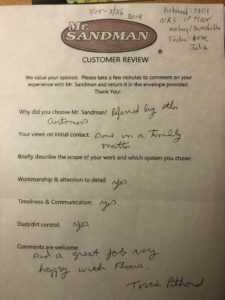 Mr.
SANDMAN
®
CUSTOMER REVIEW
We value your opinion. Please take a few minutes to comment on your
experience with Mr. Sandman and return it in the envelope provided.
Thank You!
Why did you choose Mr. Sandman? Refered by other
customers
Your views on initial contact: Came in a timely
matter
Briefly describe the scope of your work and which system you chose:
Workmanship & attention to detail: yes
Timeliness & Communication: yes
Dust/dirt control: yes
Comments are welcome:
did a great job very
happy with floors.